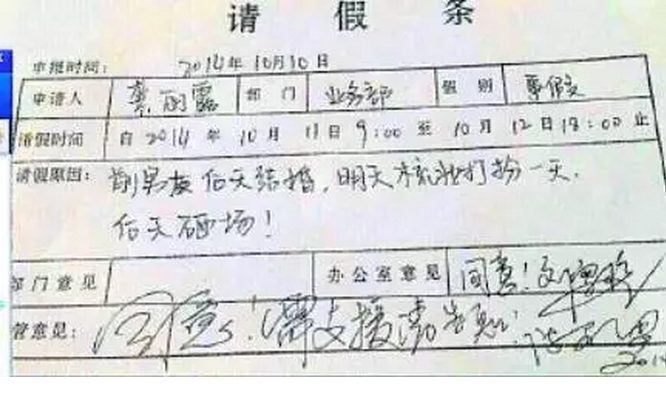 请 假 条
申报时间： 2014年10月10日
申请人 龚丽露 部门 业务部 假别 事假
请假时间 自 2014 年 10 月 11日 9:00 至 10 月 12日 18:00 止
请假原因： 前男友后天结婚，明天梳妆打扮一天，
后天砸场！
部门意见 办公室意见 同意！
管意见： 同意！需支援请告知！
2014